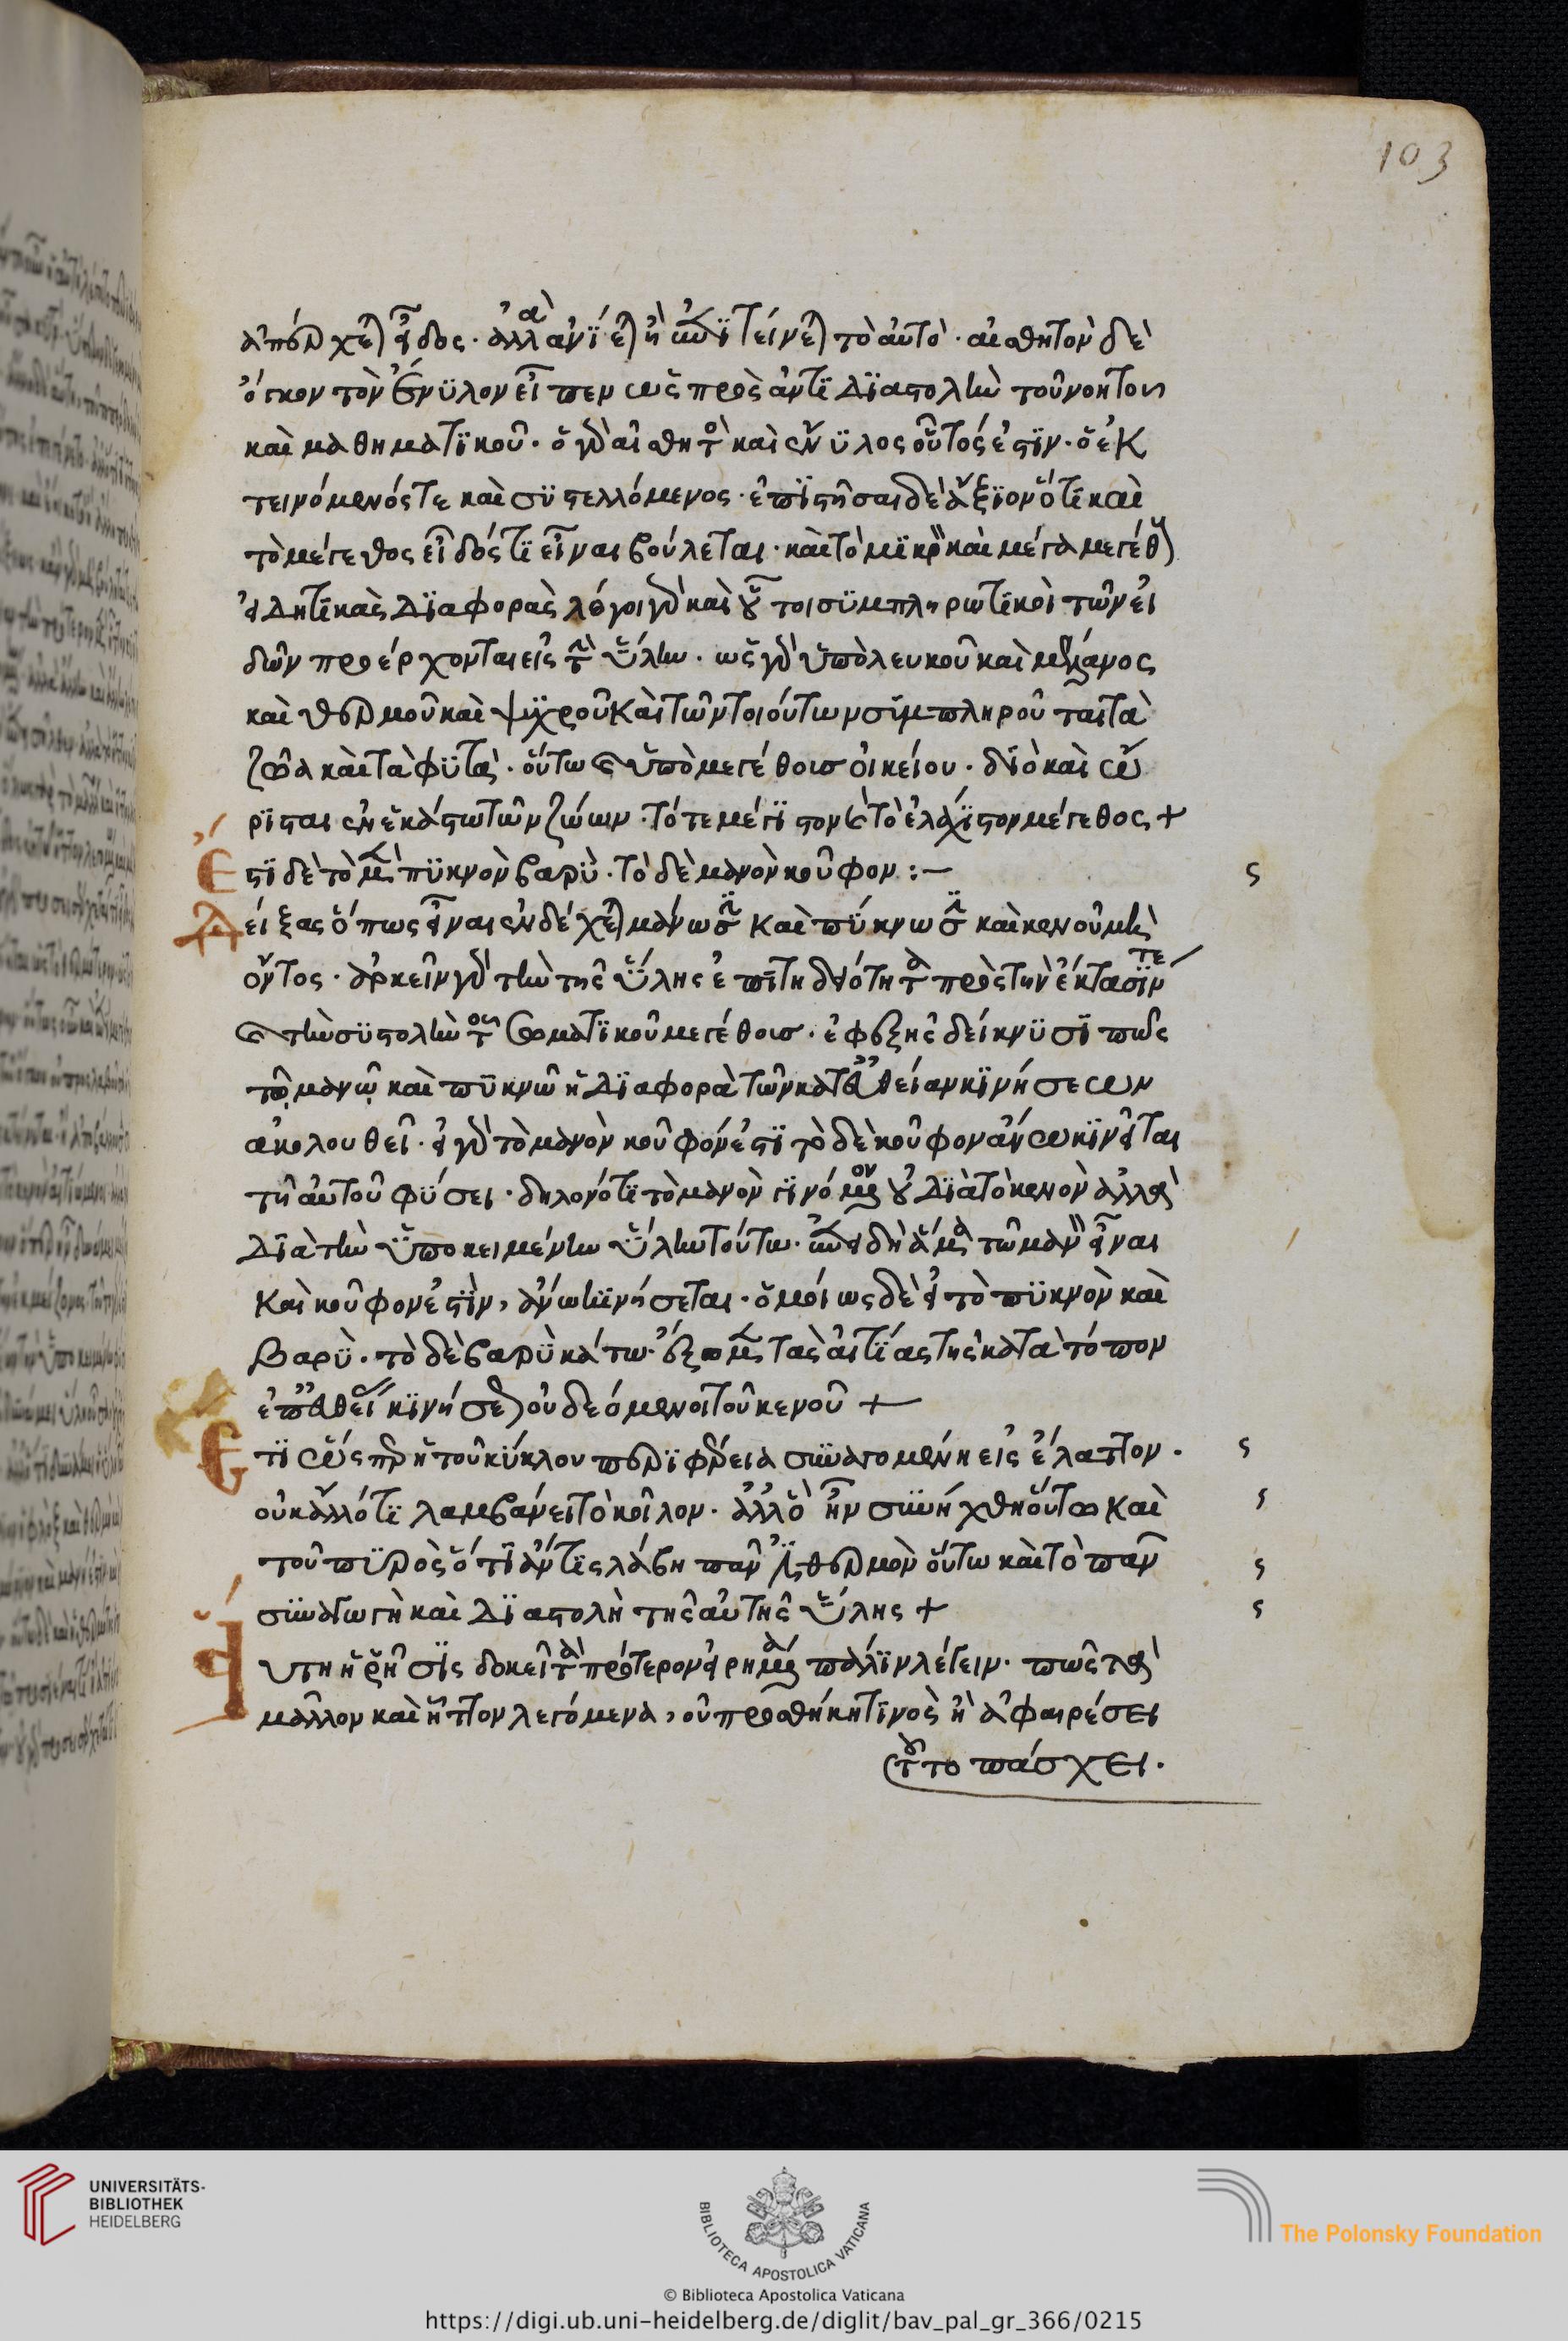 103
ἀπέρχεται εἶδος. ἀλλὰ ἀνίεται ἢ ἐπιτείνεται τὸ αὐτό. αἰσθητὸν δὲ
ὄγκον τὸν ἔνϋλον εἶπεν ὡς πρὸς ἀντιδιαστολὴν τοῦ νοητοῦ
καὶ μαθηματικοῦ. ὁ γὰρ αἰσθητὸς καὶ ἔνϋλος οὗτός ἐστιν. ὁ ἐκ
τεινόμενός τε καὶ συστελλόμενος. ἐπιστῆσαι δὲ ἄξιον ὅτι καὶ
τὸ μέγεθος εἶδός τι εἶναι βούλεται. καὶ τὸ μικρὸν καὶ μέγα μεγέθους
εἰδητικὰς διαφοράς λόγοι γὰρ καὶ οὗτοι συμπληρωτικοὶ τῶν εἰ
δῶν προέρχονται εἰς τὴν ὕλην. ὡς γὰρ ὑπὸ λευκοῦ καὶ μέλανος
καὶ θερμοῦ καὶ ψυχροῦ καὶ τῶν τοιούτων συμπληροῦται τὰ
ζῷα καὶ τὰ φυτά. οὕτω καὶ ὑπὸ μεγέθους οἰκείου. διὸ καὶ ὥ
ρισται ἐν ἑκάστῳ τῶν ζώων. τό τε μέγιστον καὶ τὸ ἐλάχιστον μέγεθος +
Ἔστι δὲ τὸ μὲν πυκνὸν βαρύ. τὸ δὲ μανὸν κοῦφον :— ς
Δείξας ὅπως εἶναι ἐνδέχεται μάνωσιν καὶ πύκνωσιν καὶ κενοῦ μὴ
ὄντος. ἀρκεῖν γὰρ τὴν τῆς ὕλης ἐπιτηδειότητα πρὸς τὴν ἔκτασίν τε
καὶ τὴν συστολὴν τοῦ σωματικοῦ μεγέθους. ἐφεξῆς δείκνυσι πῶς
τῷ μανῷ καὶ πυκνῷ ἡ διαφορὰ τῶν κατ' εὐθεῖαν κινήσεων
ἀκολουθεῖ. εἰ γὰρ τὸ μανὸν κοῦφόν ἐστι τὸ δὲ κοῦφον ἄνω κινεῖται
τῇ αὐτοῦ φύσει. δηλονότι τὸ μανὸν γινόμενον οὐ διὰ τὸ κενὸν ἀλλὰ
διὰ τὴν ὑποκειμένην ὕλην τούτῳ. ἐπειδὴ ἅμα τῷ μανὸν εἶναι
καὶ κοῦφον ἐστὶν, ἄνω κινήσεται. ὁμοίως δὲ εἰ τὸ πυκνὸν καὶ
βαρύ. τὸ δὲ βαρὺ κάτω. ἕξομεν τὰς αἰτίας τῆς κατὰ τόπον
ἐπ' εὐθείας κινήσεως οὐ δεόμενοι τοῦ κενοῦ +
Ἔτι ὥσπερ ἡ τοῦ κύκλου περιφέρεια συναγομένη εἰς ἔλαττον. ς
οὐκ ἄλλό τι λαμβάνει τὸ κοῖλον. ἀλλ' ὃ ἦν συνήχθη οὕτω καὶ ς
τοῦ πυρὸς ὅ τι ἄν τις λάβη πᾶν ἔσται θερμὸν οὕτω καὶ τὸ πᾶν ς
συναγωγὴ καὶ διαστολὴ τῆς αὐτῆς ὕλης + ς
Αὕτη ἡ ῥῆσις δοκεῖ τὰ πρότερον εἰρημένα πάλιν λέγειν. πῶς τὰ
μᾶλλον καὶ ἧττον λεγόμενα, οὐ προσθήκη τινὸς ἢ ἀφαιρέσει
τοῦτο πάσχει.
UNIVERSITÄTS-
BIBLIOTHEK
HEIDELBERG
BIBLIOTECA APOSTOLICA VATICANA
The Polonsky Foundation
© Biblioteca Apostolica Vaticana
https://digi.ub.uni-heidelberg.de/diglit/bav_pal_gr_366/0215